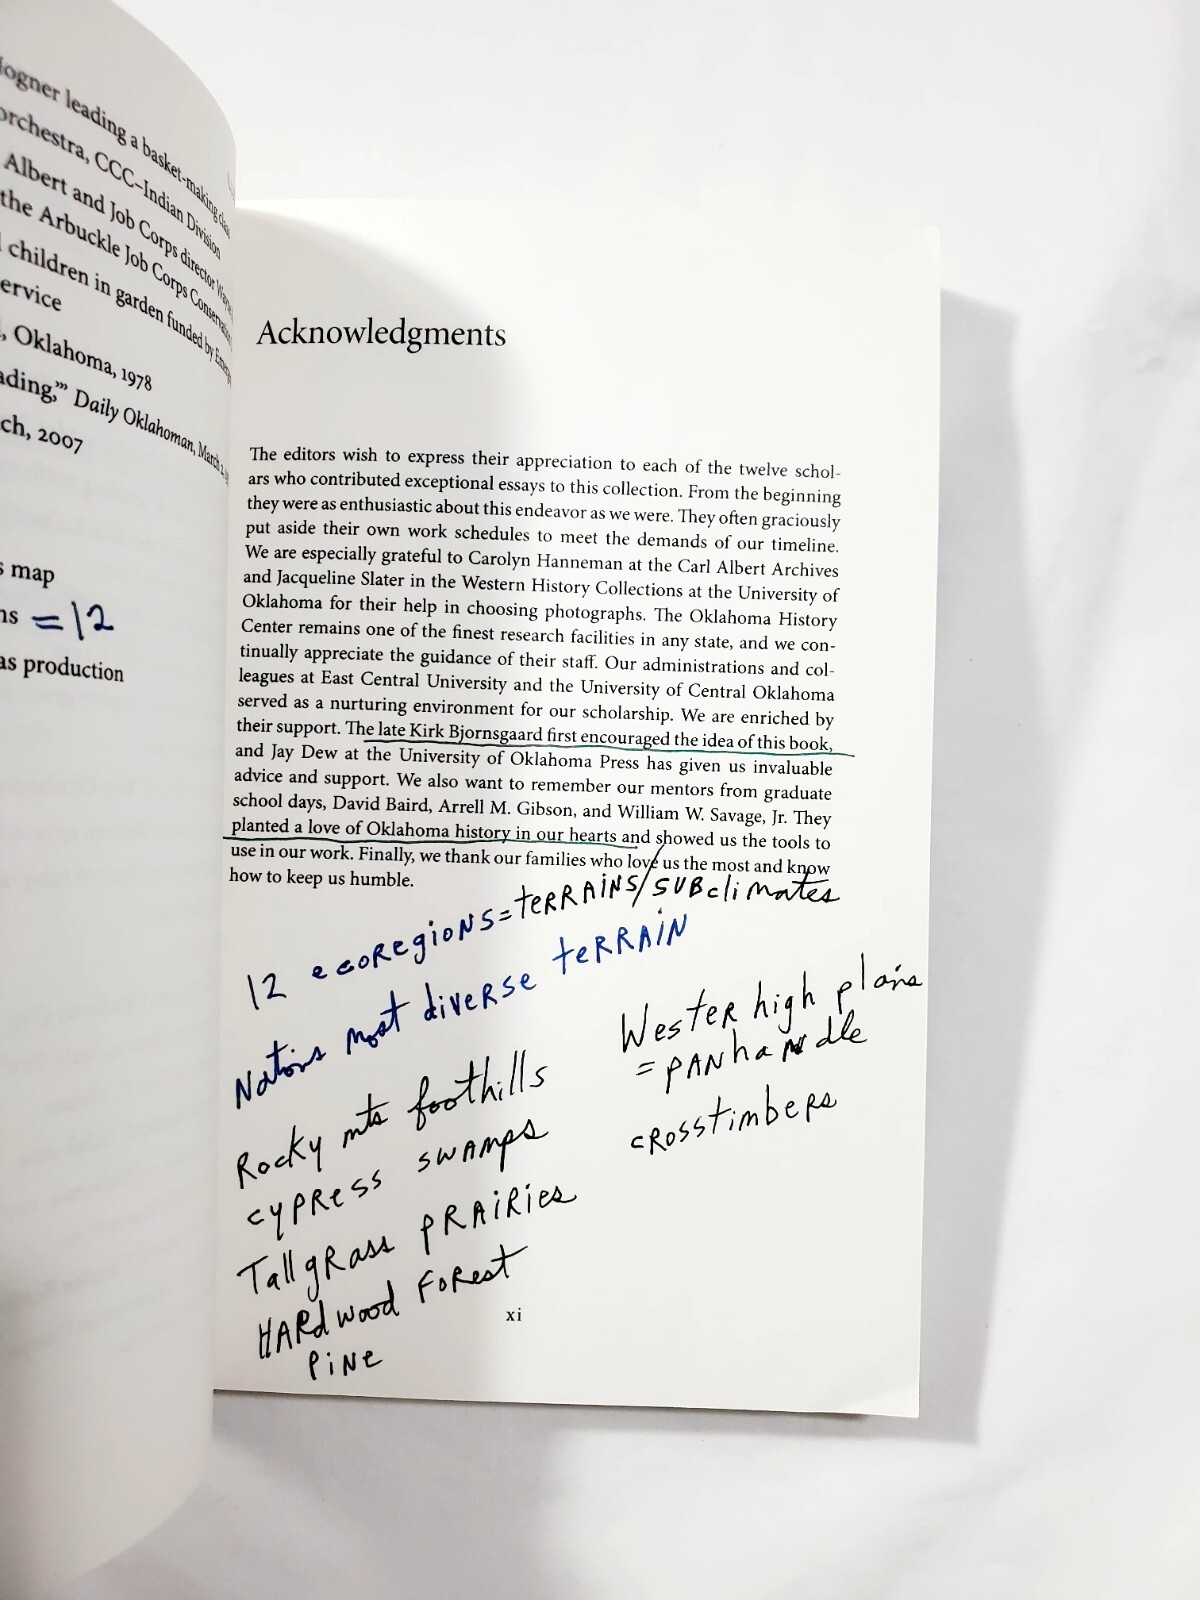 Hogner leading a basket-making class
orchestra, CCC–Indian Division
Albert and Job Corps director
the Arbuckle Job Corps
children in garden funded by
ervice
, Oklahoma, 1978
ading,’” Daily Oklahoman, March 2,
ch, 2007
s map
ns =12
as production
Acknowledgments
The editors wish to express their appreciation to each of the twelve schol-
ars who contributed exceptional essays to this collection. From the beginning
they were as enthusiastic about this endeavor as we were. They often graciously
put aside their own work schedules to meet the demands of our timeline.
We are especially grateful to Carolyn Hanneman at the Carl Albert Archives
and Jacqueline Slater in the Western History Collections at the University of
Oklahoma for their help in choosing photographs. The Oklahoma History
Center remains one of the finest research facilities in any state, and we con-
tinually appreciate the guidance of their staff. Our administrations and col-
leagues at East Central University and the University of Central Oklahoma
served as a nurturing environment for our scholarship. We are enriched by
their support. The late Kirk Bjornsgaard first encouraged the idea of this book,
and Jay Dew at the University of Oklahoma Press has given us invaluable
advice and support. We also want to remember our mentors from graduate
school days, David Baird, Arrell M. Gibson, and William W. Savage, Jr. They
planted a love of Oklahoma history in our hearts and showed us the tools to
use in our work. Finally, we thank our families who love us the most and know
how to keep us humble.
12 ecoregions=terrains/subclimates
Nations most diverse terrain
Rocky mts foothills
cypress swamps
Tallgrass prairies
Hardwood Forest
Pine
Wester high plains
=panhandle
crosstimbers
xi